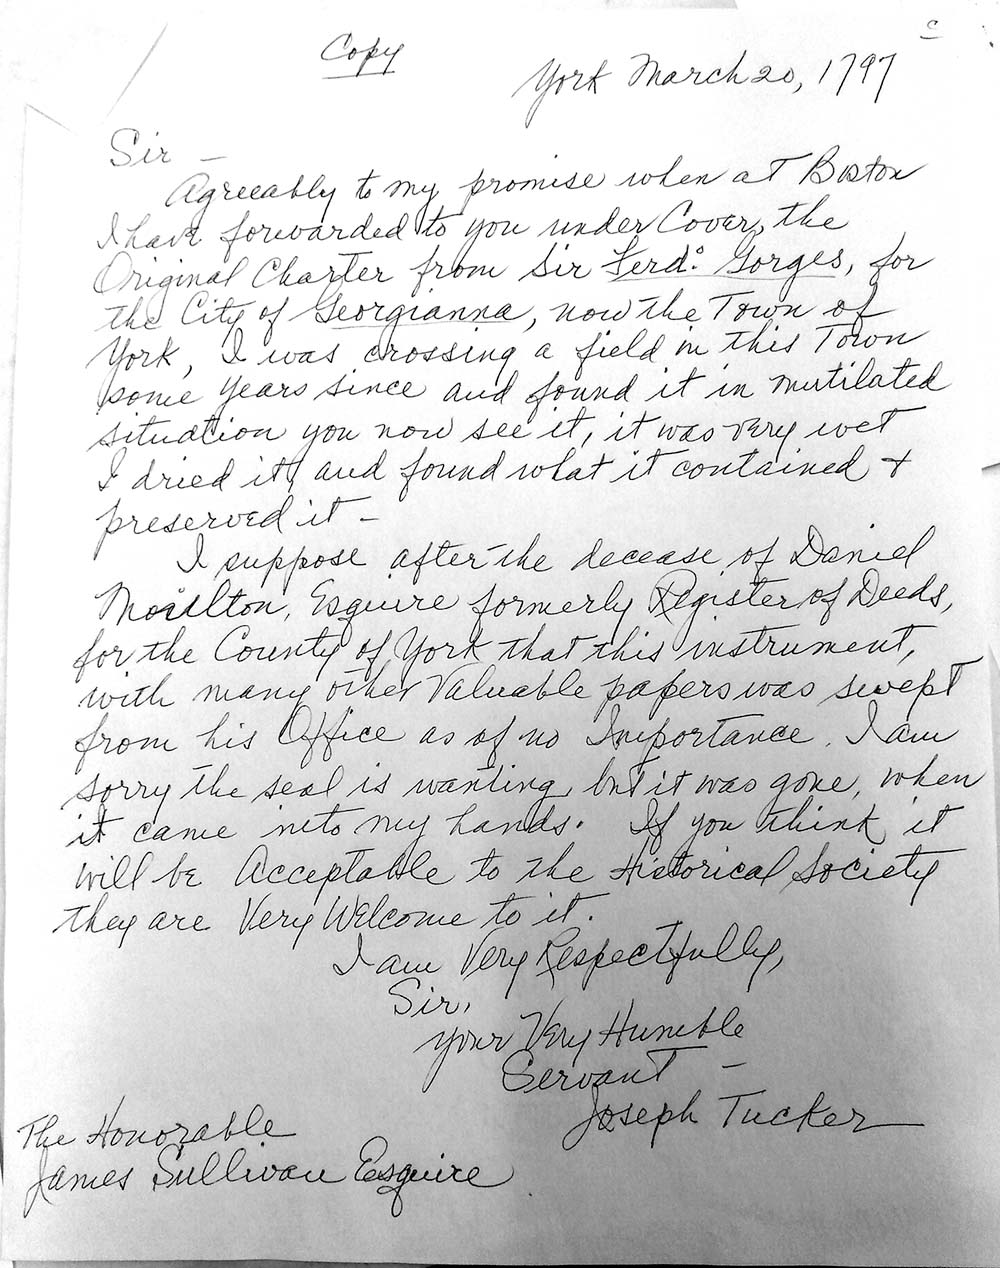 c
Copy
York March 20, 1797
Sir —
Agreeably to my promise when at Boston
I have forwarded to you under Cover, the
Original Charter from Sir Ferd.º Gorges, for
the City of Georgianna, now the Town of
York, I was crossing a field in this Town
some years since and found it in mutilated
situation you now see it, it was very wet
I dried it, and found what it contained +
preserved it —
I suppose after the decease of Daniel
Moulton, Esquire formerly Register of Deeds,
for the County of York that this instrument,
with many other Valuable papers was swept
from his Office as of no Importance. I am
sorry the seal is wanting, but it was gone, when
it came into my hands. If you think it
will be Acceptable to the Historical Society
they are Very Welcome to it.
I am Very Respectfully,
Sir,
your Very Humble
Servant —
Joseph Tucker
The Honorable
James Sullivan Esquire